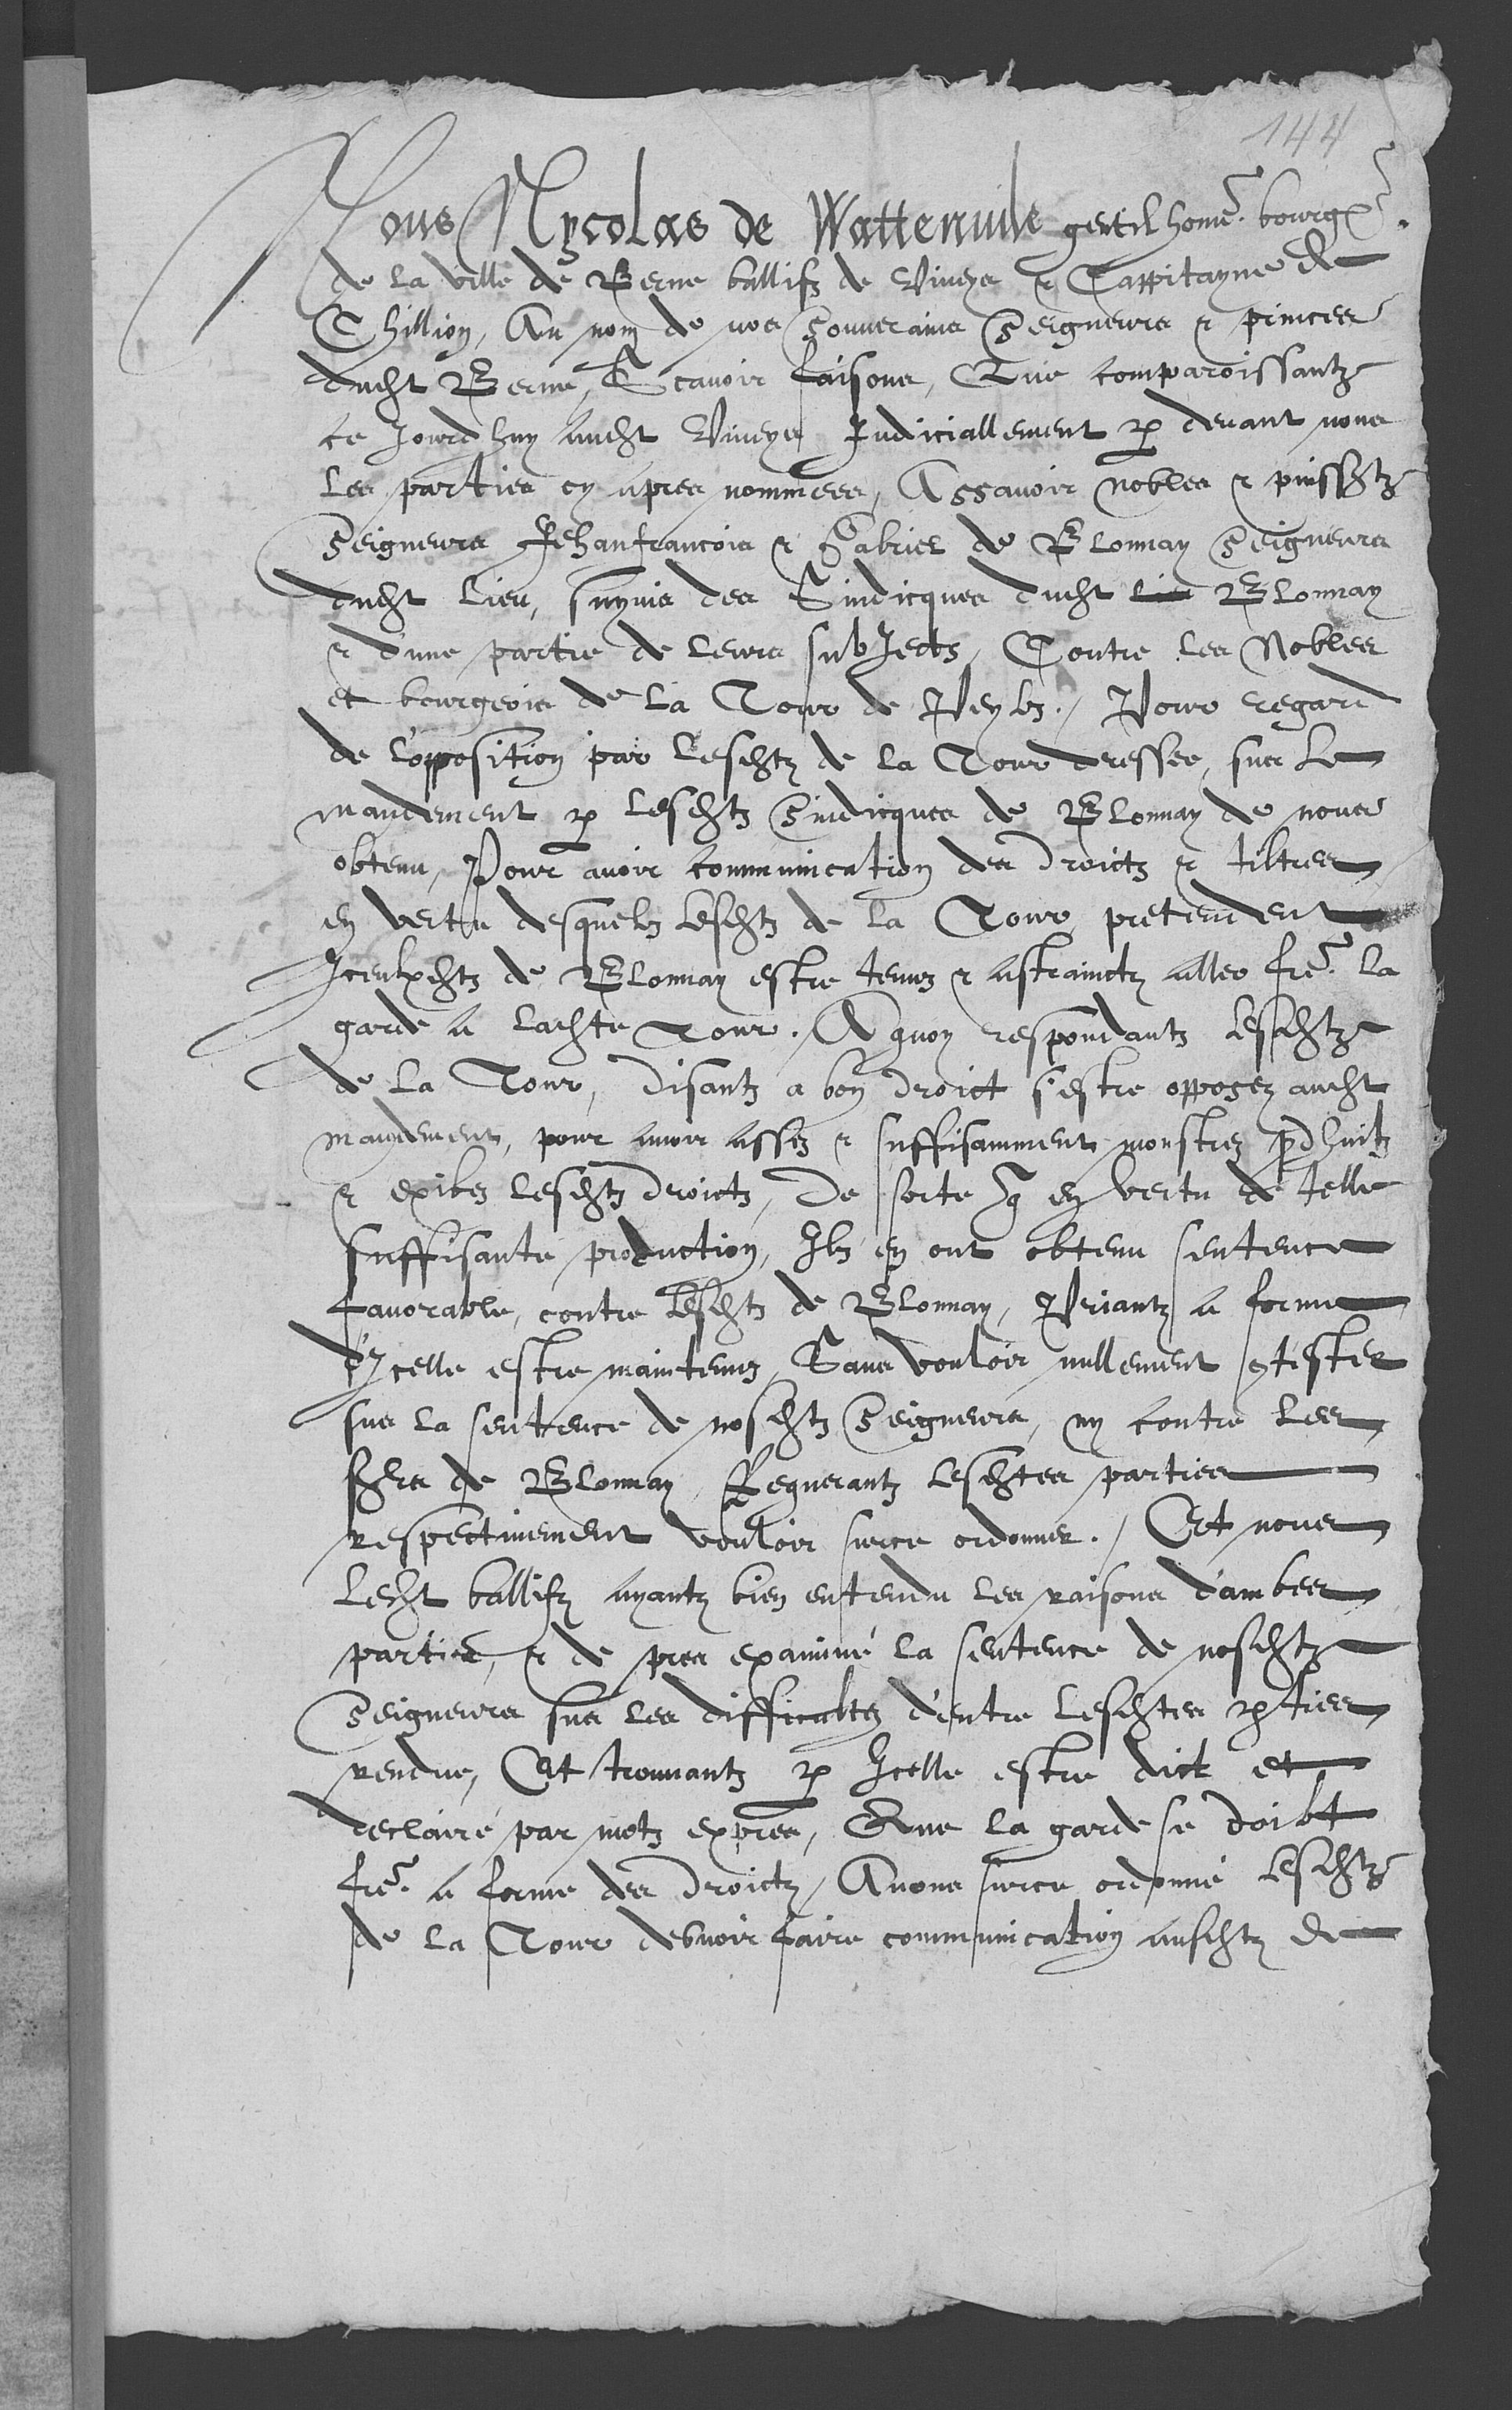 144
Nous Nycolas de Wattenuile gentilhome. bourgs.
de la ville de Berne ballifz de Viueys & Cappitayne de
Chillion, Au nom de nos souuerains seigneurs & princes
dudt Berne, Scauoir faisons, Que comparoissantz
ce Jourdhuy audt Viueys Judiciallement p deuant nous
les parties cy apres nommees, Assauoir nobles & puissátz
seigneurs Jehanfrancois & Gabriel de Blonnay seigneurs
dudt lieu, suyuis des Sindicques dudt lie Blonnay
& dune partie de leurs subJects, Contre les Nobles
et bourgeois de la Tour de Peylz. / Pour regard
de lopposition par lesdtz de la Tour dressee, sus le
mandement p lesdtz sindicques de Blonnay de nous
obtenu, Pour auoir communication des droictz & tiltres
en vertu desquelz lesdtz de la Tour pretendent
Jceulxdtz de Blonnay estre tenuz & astrainctz aller fre. la
garde a ladte Tour. A quoy respondantz lesdtz
de la Tour, disantz a bon droict sestre opposez audt
mandement, pour auoir assez & suffisamment monstrez pdhuitz
& exibez lesdtz droictz, De sorte q en vertu de telle
suffisante production, Ilz en ont obtenu sentence
fauorable, contre lesdtz de Blonnay, Priantz a forme
dJcelle estre maintenuz, Sans vouloir nullement 9tester
sus la sentence de nosdtz seigneurs, ny contre les
srs de Blonnay, Requerantz lesdtes parties
respectiuement vouloir surce ordonner. / Et nous
ledt ballifz ayantz bien entendu les raisons dambes
parties, & de pres examiné la sentence de nosdtz
seigneurs sus les difficultez dentre lesdtes pties
rendue, Et trouuantz p Jcelle estre dict et
declairé par motz expres, Que la garde se doibt
fre. a forme des droictz, Auons surce ordonné lesdtz
de la Tour debuoir faire communication ausdtz de